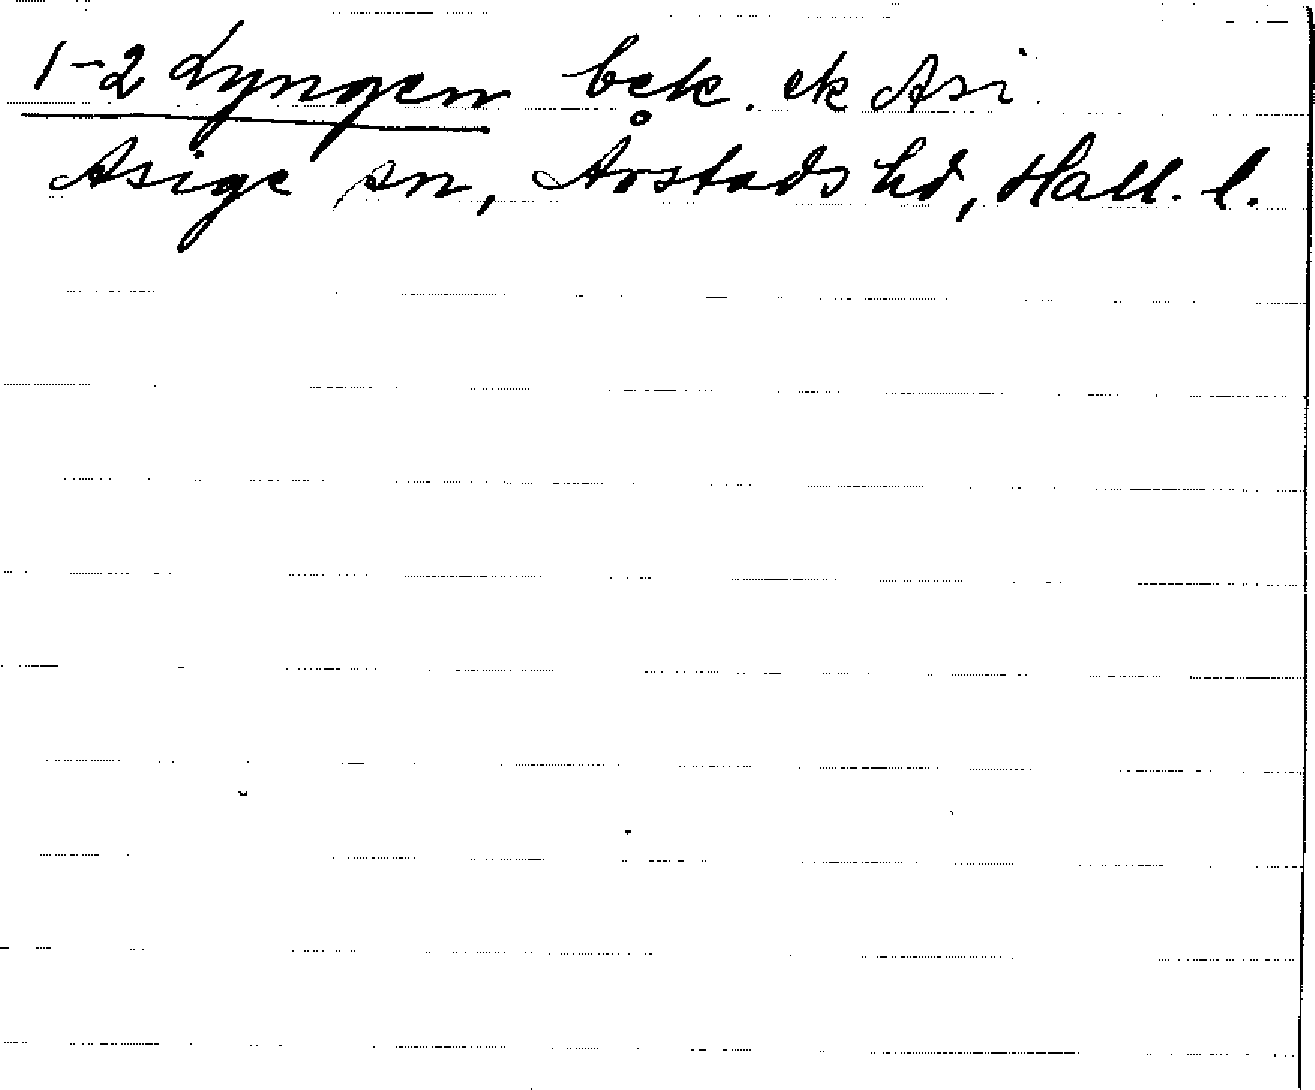 1-2 Lyngen bek. ek Asi
Asige sn, Årstads hd, Hall. l.